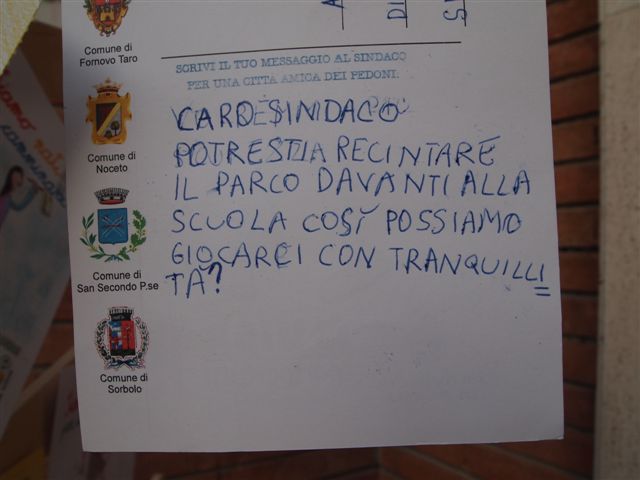 Comune di
Fornovo Taro
SCRIVI IL TUO MESSAGGIO AL SINDACO
PER UNA CITTÀ AMICA DEI PEDONI:
CARO SINDACO
POTRESTI RECINTARE
IL PARCO DAVANTI ALLA
SCUOLA COSÌ POSSIAMO
GIOCARCI CON TRANQUILLI
TÀ?
Comune di
Noceto
Comune di
San Secondo P.se
Comune di
Sorbolo